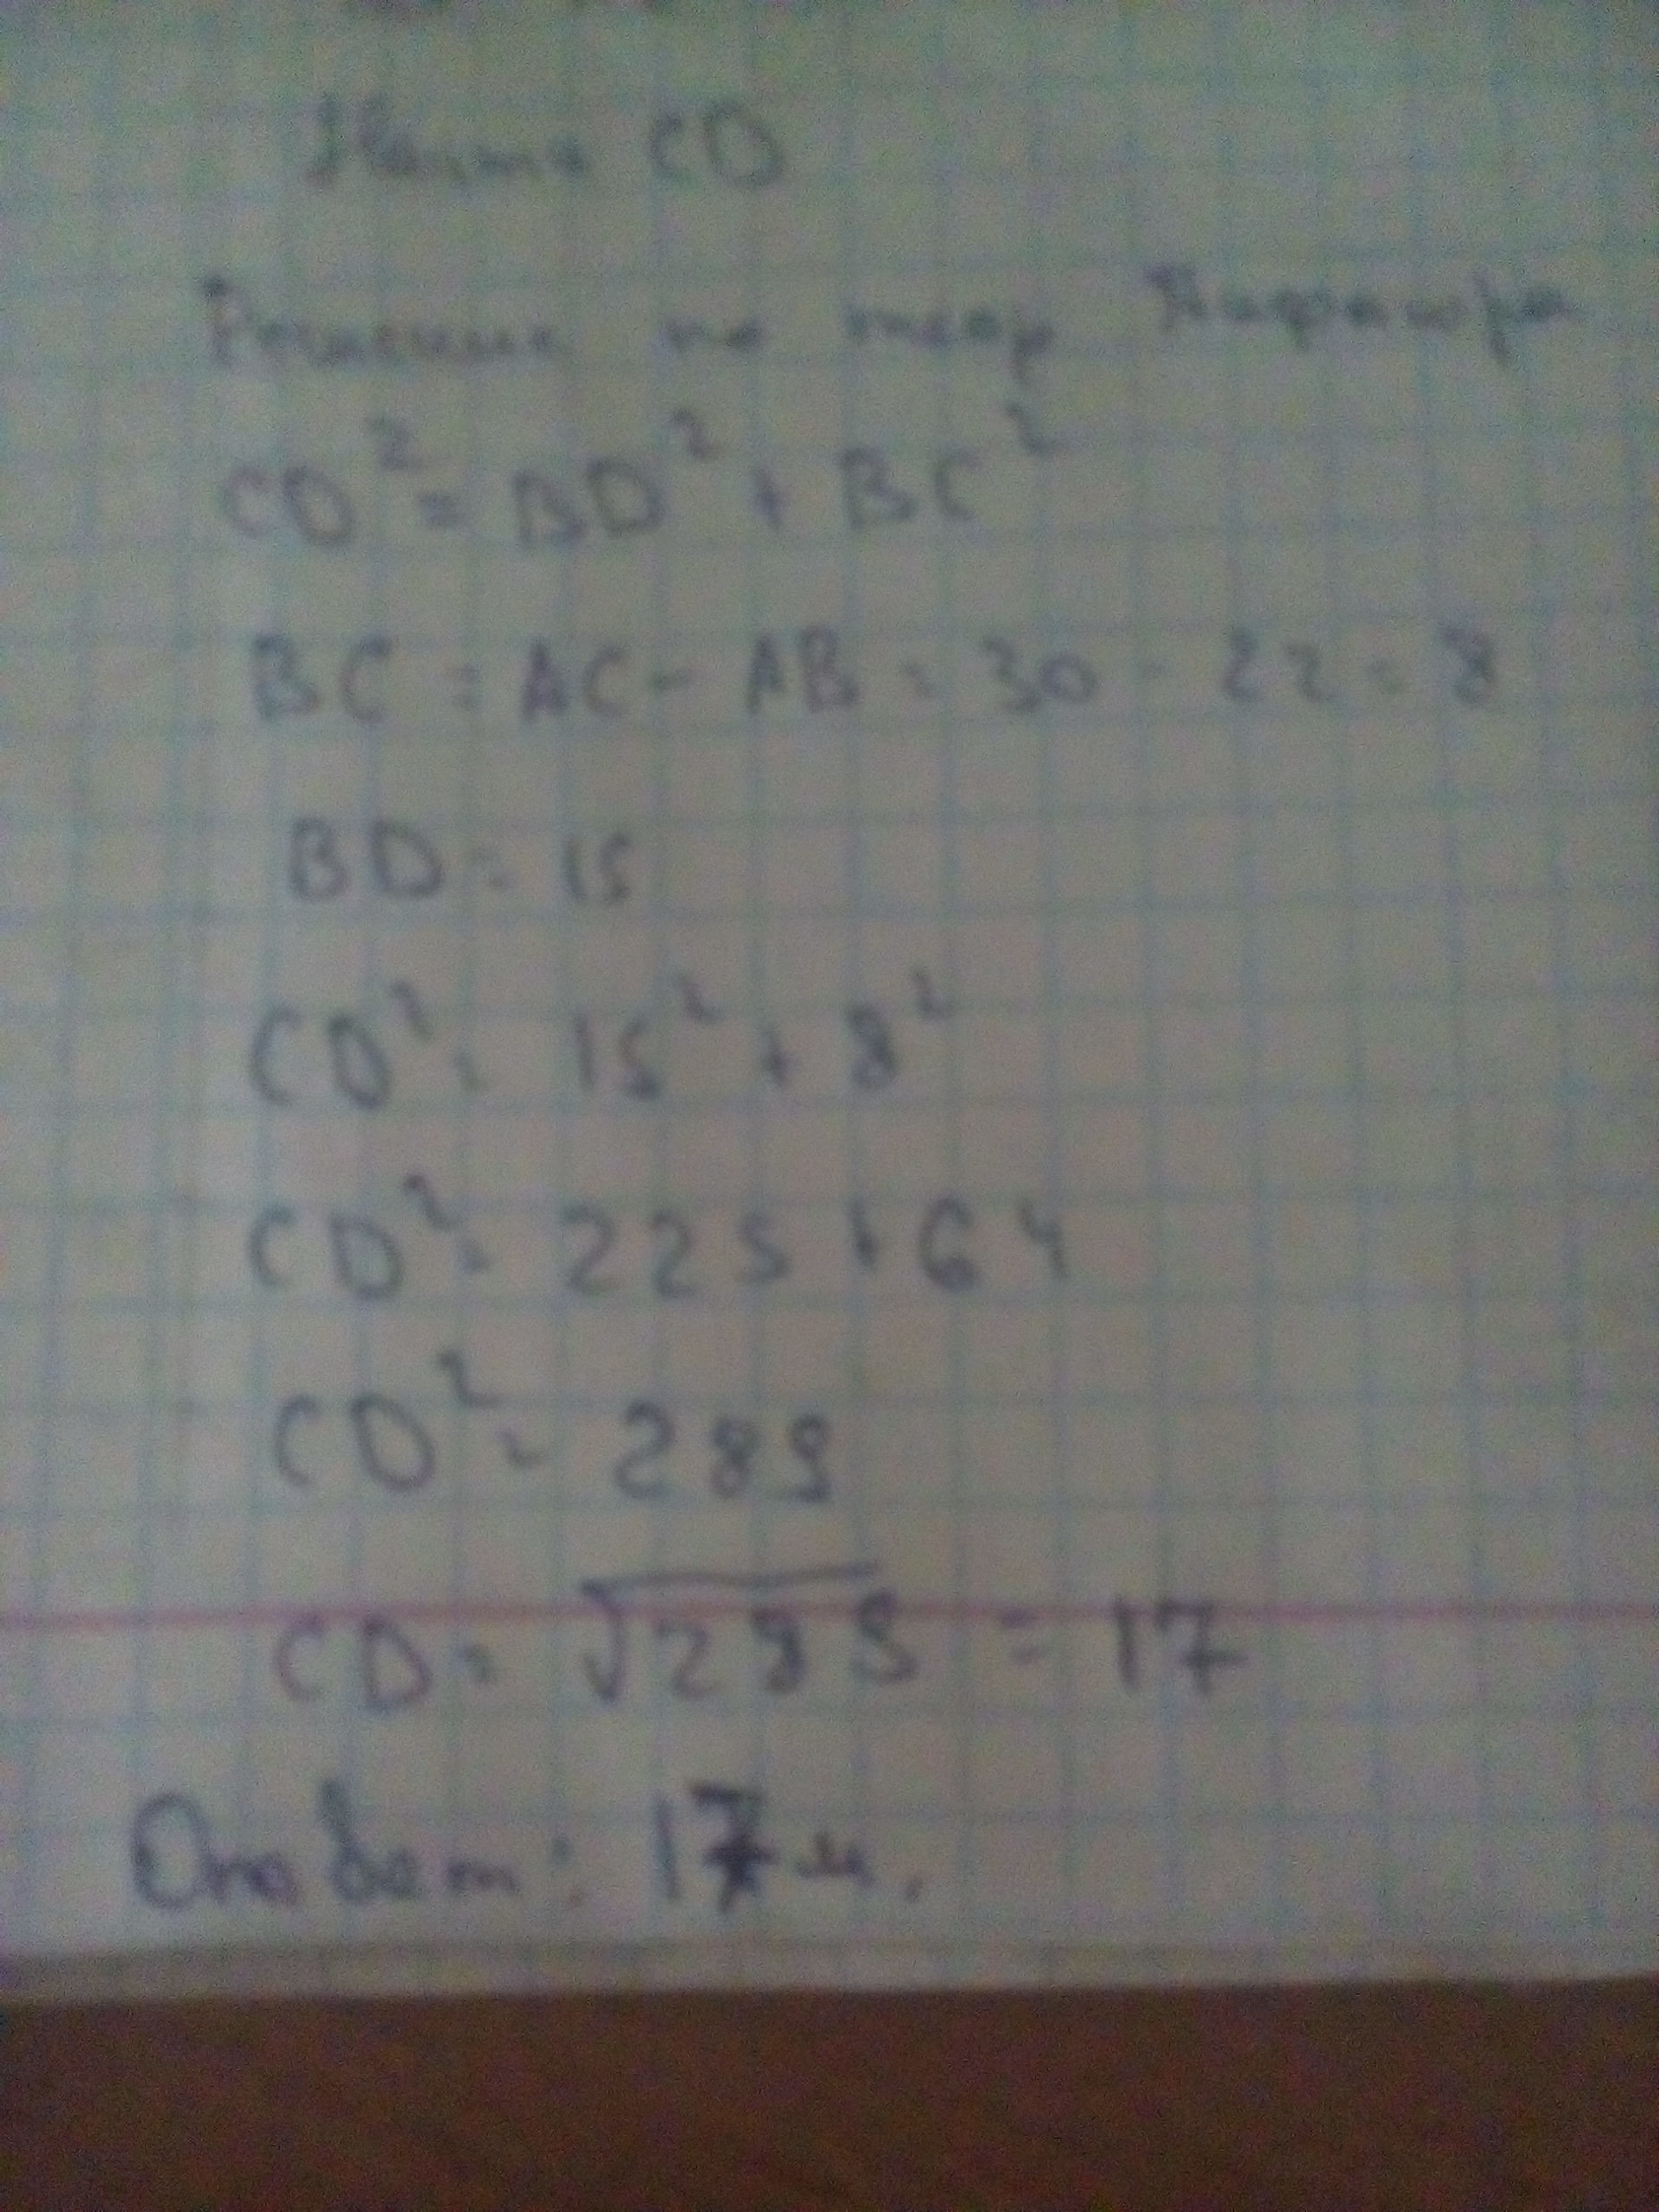 Найти CD
Решение по теор Пифагора
CD² = BD² + BC²
BC = AC - AB = 30 - 22 = 8
BD = 15
CD² = 15² + 8²
CD² = 225 + 64
CD² = 289
CD = √289 = 17
Ответ: 17 м.